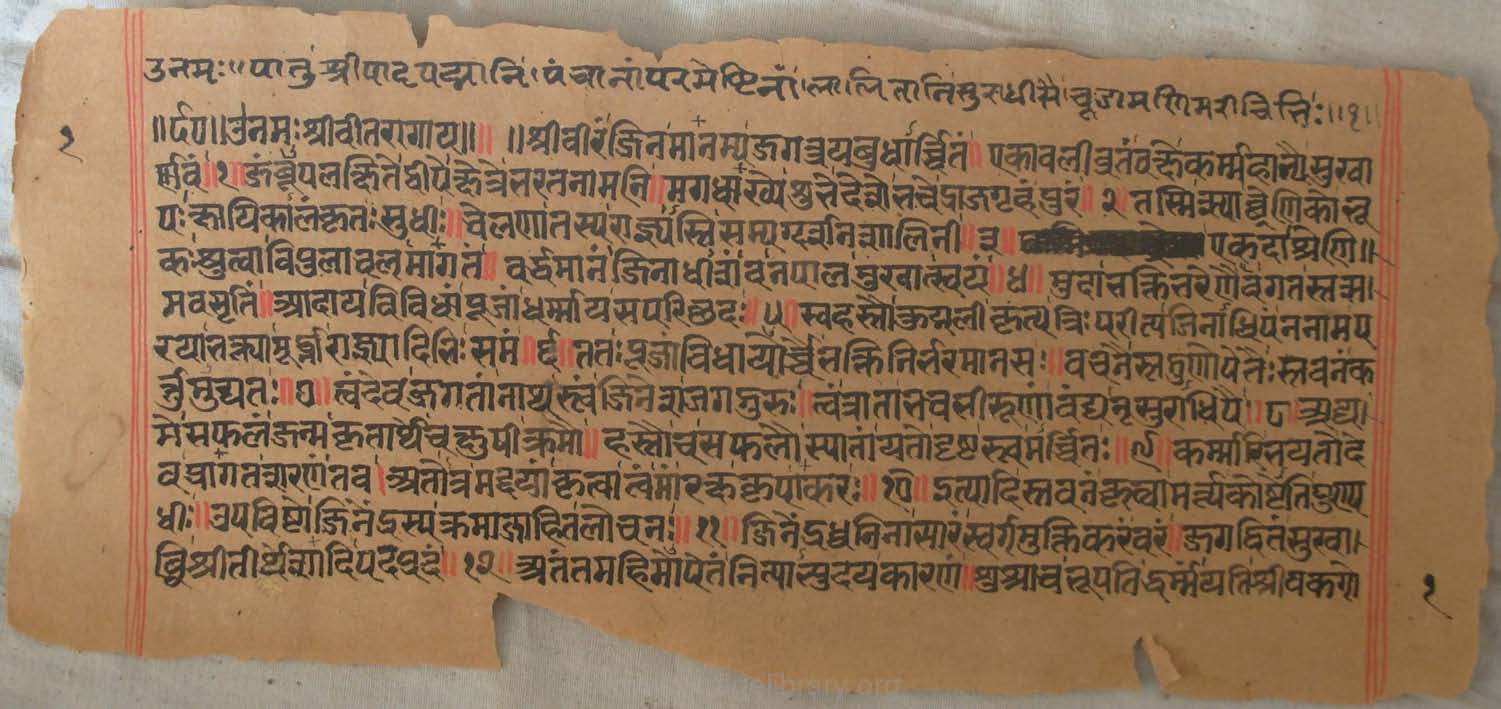 उनमः॥पातु श्रीपादपद्मानि।पंचानां परमेष्टिनां।लालितानिसुराधीसै।चूडामणिमरीचिभिः॥१॥
॥८०॥उनमः श्रीवीतरागाय॥॥श्रीवीरंजिनमानम्यजगत्त्रयबुधार्च्चितं॥एकावलीव्रतंवक्ष्येकर्म्महान्यैसुखा
र्णवं॥१॥जंबूपलक्षितेद्वीपेक्षेत्रेभरतनामनि॥मगधाख्येशुभेदेशेभवेद्राजगृहंपुरं॥२॥तस्मिन्स्याच्छ्रेणिकोभू
पःक्षायिकालंकृतःसुधीः॥चेलणातस्यराज्ञ्यस्तिसम्यग्दर्शनशालिनी॥३॥एकदाश्रेणि॥
कःश्रुत्वाविपुलाचलमागतं॥वर्द्धमानंजिनाधीशंवनपालमुखात्स्वयं॥४॥मुदाभक्तिभरेणैवगतस्तत्स।
मवसृतिं॥आदायविविधांपूजांधर्म्मायसपरिछदः॥५॥स्वहस्तौकुड्मलीकृत्यत्रिःपरीत्यजिनाधिपंननामप
रयाभक्त्यामूर्द्ध्नाराज्ञ्यादिभिःसमं॥६॥ततःपूजांविधायोच्चैभक्तिनिर्भरमानसः॥वचनैस्तद्गुणोपेतैःस्तवनंक
र्त्तुमुद्यतः॥७॥त्वंदेवजगतांनाथस्त्वंजिनेशजगद्गुरुः॥त्वंत्राताभवभीरूणांवंद्यनृसुराधिपैः॥८॥अद्य।
मेसफलंजन्मकृतार्थेचक्षुषीक्रमौ॥हस्तौचसफलौस्यातांयतोदृष्टस्त्वमर्च्चितः॥९॥कर्म्मारिभयतोदे
वप्रागतशरणंतव।अतोत्रमद्दयांकृत्वात्वंमांरक्षकृपाकरः॥१०॥इत्यादिस्तवनंकृत्वामर्त्त्यकोष्टेतिपुण्य
धीः॥उपविष्टोजिनेंद्रस्यक्रमाजाहितलोचनः॥११॥जिनेंद्रध्वनिनासारंस्वर्गमुक्तिकरंवरं॥जगद्धितंसुखा।
ब्धिश्रीतीर्थेशादिपदप्रदं॥१२॥अतंतमहिमोपेतंनित्याभ्युदयकारणं॥शुश्रावभूपतिर्द्धर्म्मंयतिश्रावकगो
१
१